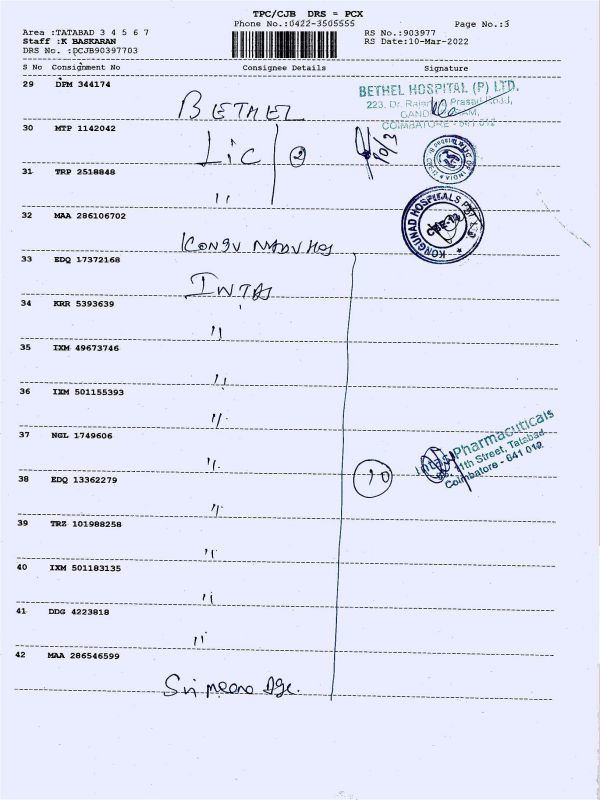 TPC/CJB DRS = PCX
Phone No.:0422-3505555
Page No.:3
Area :TATABAD 3 4 5 6 7
RS No.:903977
Staff :K BASKARAN
RS Date:10-Mar-2022
DRS No. :DCJB90397703
S No Consignment No Consignee Details Signature
29 DPM 344174
BETHEL
BETHEL HOSPITAL (P) LTD.
223, Dr. Prasad Road,
COIMBATORE - 641 012
30 MTP 1142042
LIC 2
10/3
31 TRP 2518848
"
32 MAA 286106702
KONGU NADU HOS
KONGUNAD HOSPITALS PVT LTD
CBE-12
33 EDQ 17372168
INTAS
34 KRR 5393639
"
35 IXM 49673746
"
36 IXM 501155393
"
37 NGL 1749606
"
10
Intas Pharmaceuticals
11th Street, Tatabad
Coimbatore - 641 012
38 EDQ 13362279
"
39 TRZ 101988258
"
40 IXM 501183135
"
41 DDG 4223818
"
42 MAA 286546599
Sri